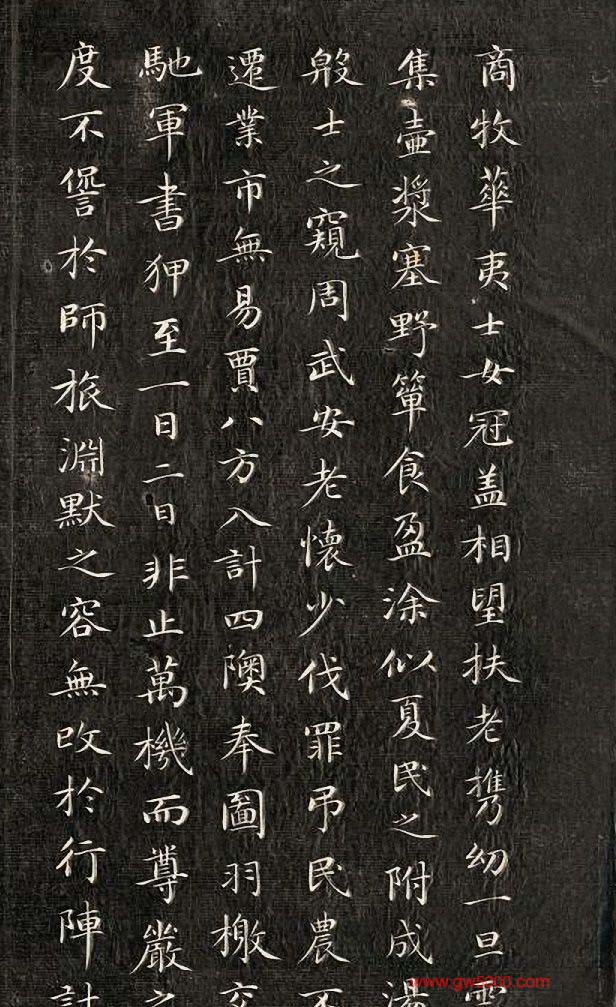 商牧華夷士女冠盖相望扶老携幼一旦雲
集壺漿塞野簞食盈涂似夏民之附成湯
殷士之窺周武安老懷少伐罪弔民農不
遷業市無易賈八方入計四隩奉圖羽檄交
馳軍書狎至一日二日非止萬機而尊嚴之
度不諐於師旅淵默之容無改於行陣計
www.gw5200.com